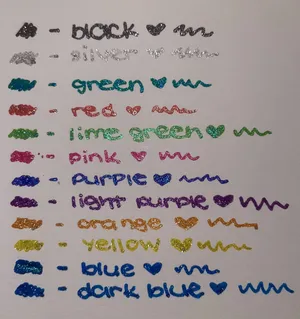 - black
- silver
- green
- red
- lime green
- pink
- purple
- light purple
- orange
- yellow
- blue
- dark blue